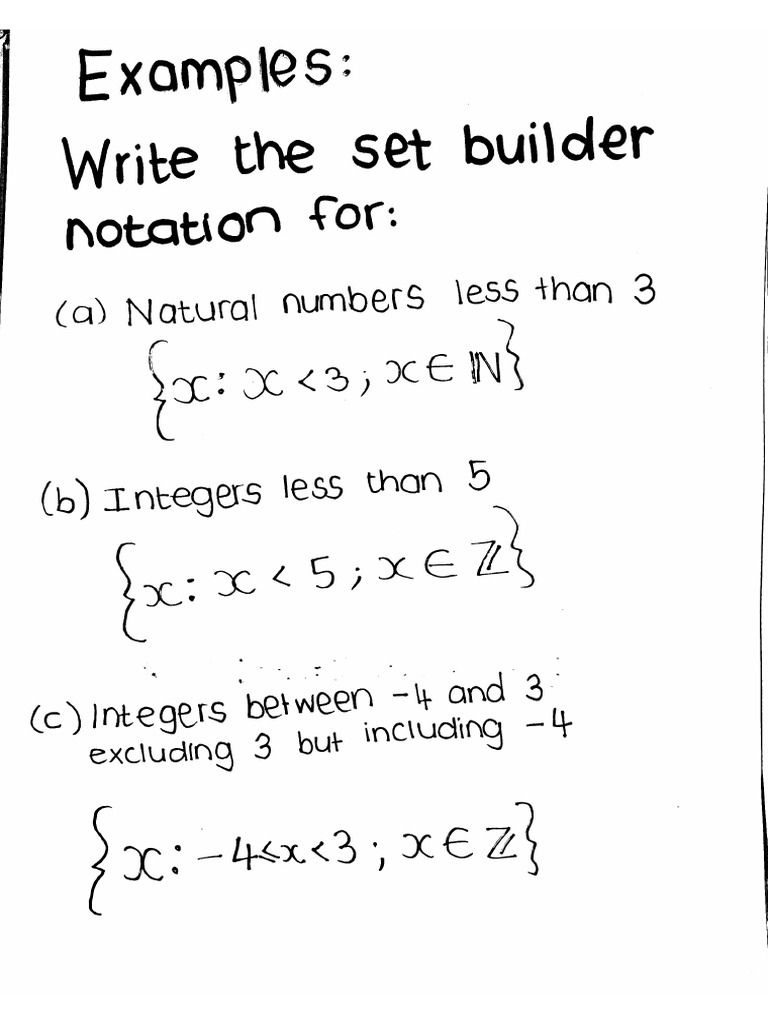 Examples:
Write the set builder
notation for:
(a) Natural numbers less than 3
{x: x < 3; x ∈ ℕ}
(b) Integers less than 5
{x: x < 5; x ∈ ℤ}
(c) Integers between -4 and 3
excluding 3 but including -4
{x: -4 ≤ x < 3; x ∈ ℤ}